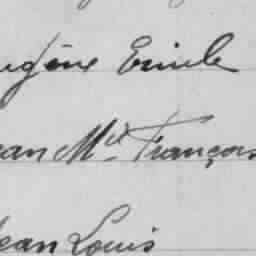 ugène Emile
ean Mie François
Jean Louis